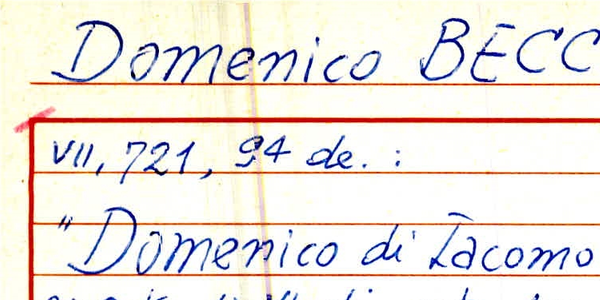 Domenico BECC
VII, 721, 94 de. :
"Domenico di Iacomo